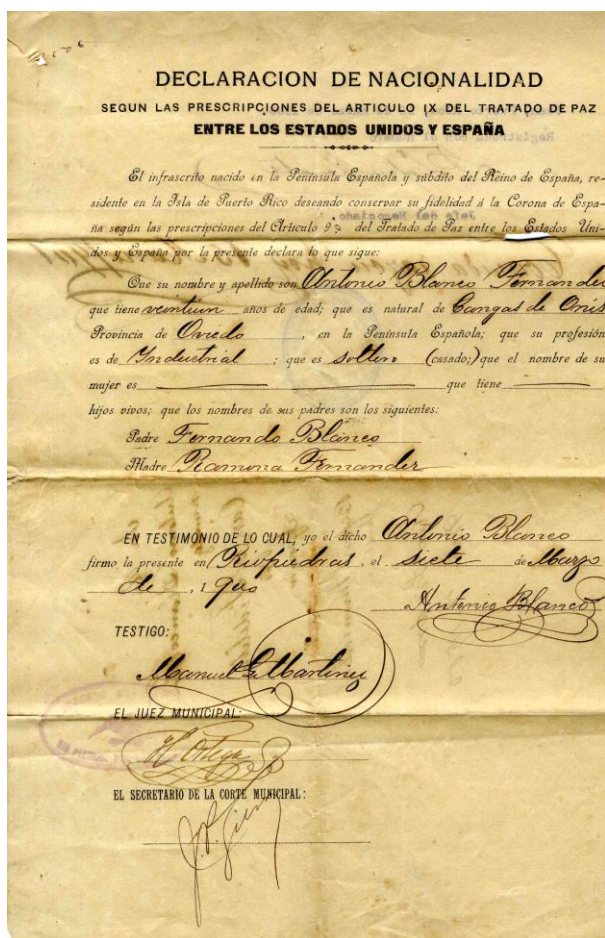 DECLARACION DE NACIONALIDAD
SEGUN LAS PRESCRIPCIONES DEL ARTICULO IX DEL TRATADO DE PAZ
ENTRE LOS ESTADOS UNIDOS Y ESPAÑA
El infrascrito nacido en la Península Española y súbdito del Reino de España, re-
sidente en la Isla de Puerto Rico deseando conservar su fidelidad á la Corona de Espa-
ña según las prescripciones del Artículo 9º del Tratado de Paz entre los Estados Uni-
dos y España por la presente declara lo que sigue:
Que su nombre y apellido son Antonio Blanco Fernandez
que tiene veintiun años de edad; que es natural de Cangas de Onis
Provincia de Oviedo, en la Península Española; que su profesión
es de Industrial; que es soltero (casado;) que el nombre de su
mujer es que tiene
hijos vivos; que los nombres de sus padres son los siguientes:
Padre Fernando Blanco
Madre Ramona Fernandez
EN TESTIMONIO DE LO CUAL, yo el dicho Antonio Blanco
firmo la presente en Riopiedras, el siete de Marzo
de 1900
Antonio Blanco
TESTIGO:
Manuel G. Martinez
EL JUEZ MUNICIPAL:
Ortega
EL SECRETARIO DE LA CORTE MUNICIPAL: